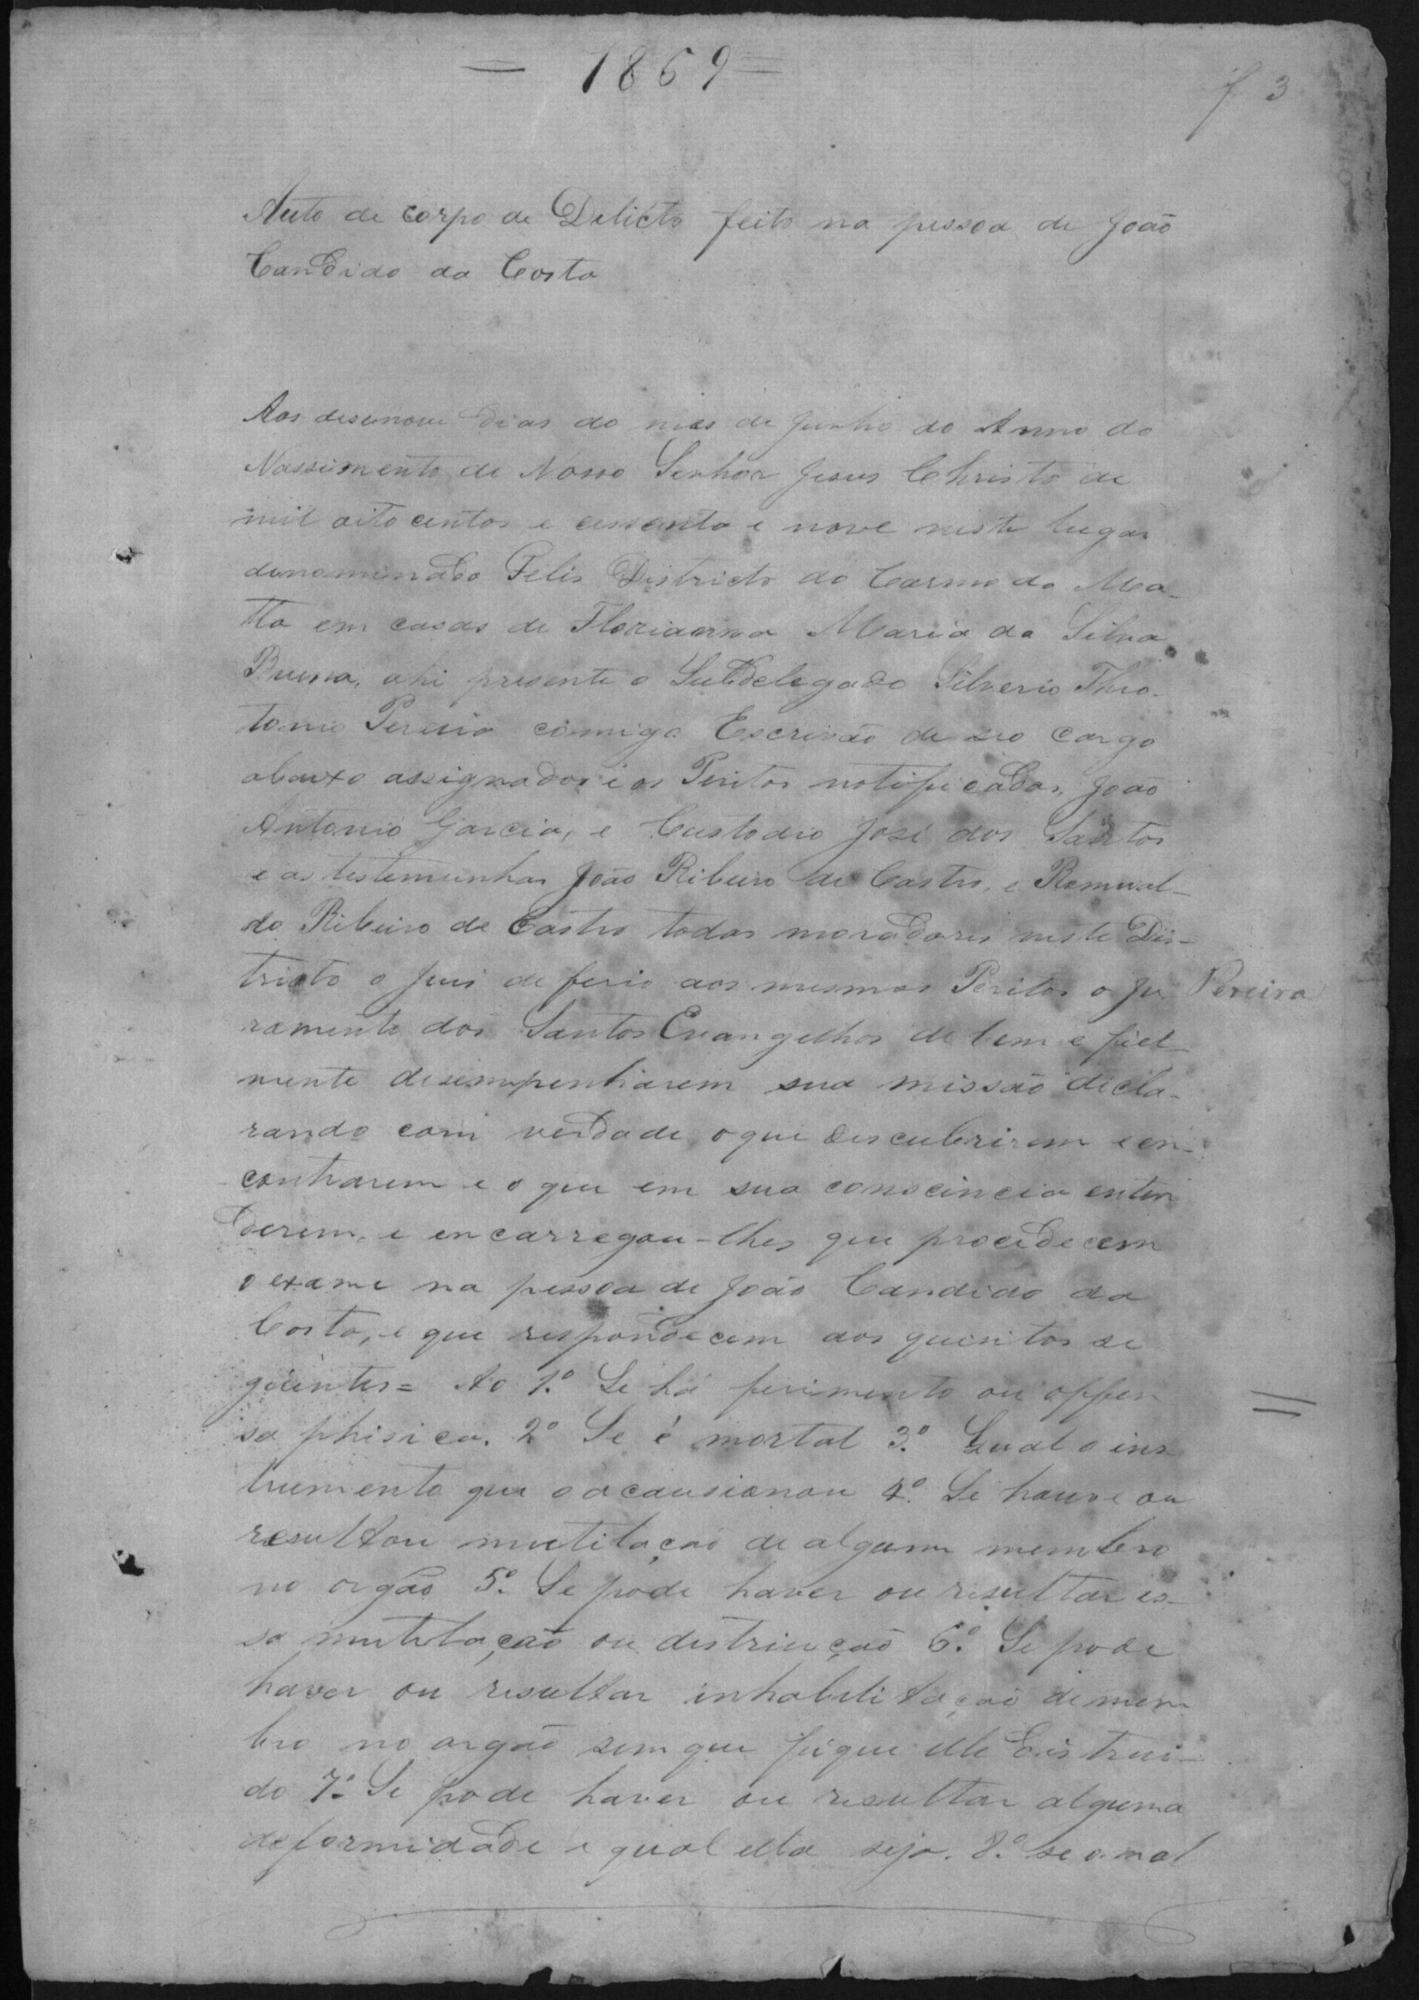 = 1869 =
f 3
Auto de corpo de Delicto feito na pessoa de João
Candido da Costa
Aos desenove dias do mes de Junho do Anno do
Nassimento de Nosso Senhor Jesus Christo de
mil oito centos e cessenta e nove neste lugar
denominado Felis Districto do Carmo da Ma-
tta em casas de Florianna Maria da Silva
Buena, ahi presente o Subdelegado Silverio Theo-
tonio Pereira comigo Escrivão de seo cargo
abaixo assignados e os Peritos notificados, João
Antonio Garcia, e Custodio José dos Santos
e as testemunhas João Ribeiro de Castro, e Romual-
do Ribeiro de Castro todos moradores neste Dis-
tricto o Juis deferio aos mesmos Peritos o Ju
Pereira
ramento dos Santos Evangelhos de bem e fiel-
mente desempenharem sua missão decla-
rando com verdade, o que descubrirem e en-
contrarem e o que em sua conscincia enten
derem, e encarregou-lhes que procedecem
o exame na pessoa de João Candido da
Costa, e que respondecem aos quesitos se
guintes = Ao 1º. Se há ferimento ou offen
sa phisica. 2º Se é mortal 3º. Qual o ins-
trumento que o ocausionou 4º. Se houve ou
resultou mutilação de algum membro
no orgão 5º. Se pode haver ou resultar es-
sa mutilação ou distruição 6º. Se pode
haver ou resultar inhabilitação de mem
bro no orgão sem que fique elle Distrui-
do 7º Se pode haver ou resultar alguma
deformidade e qual ella seja. 8º. se o mal